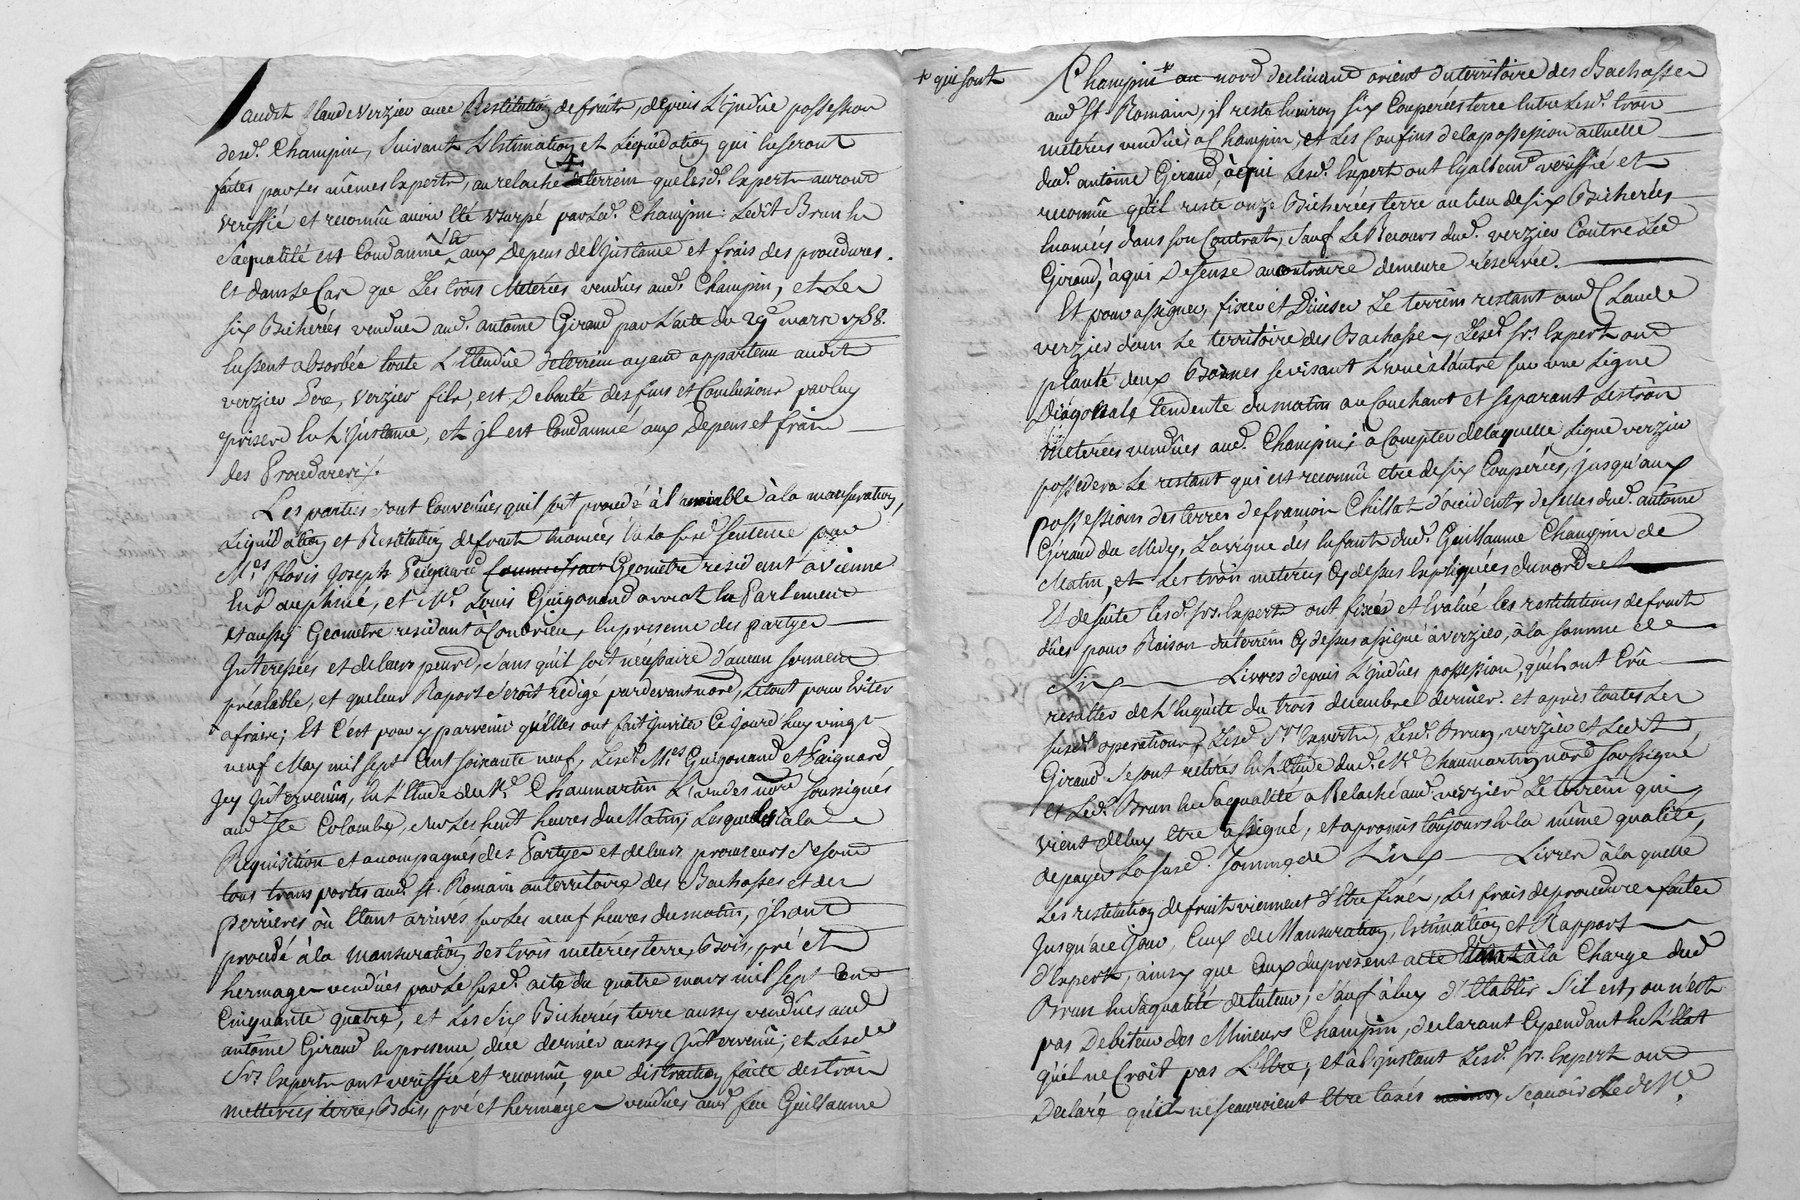 audit Claude Verzieu avec Restitution de fruits, depuis L'jndüe possession
desd. Champin, Suivant L'Estimation et Liquidation qui en seront
faites par les mêmes Experts, au relache de terrein que lesd. Experts auront
veriffié et reconnû avoir Eté Usurpé par led. Champin: Ledit Brun En
Saqualité est Condamné aux Depens de L'jnstance et frais des procedures.
Et dans Le Cas que Les trois Meterées vendües aud. Champin, et Les
six Bicherées vendues aud. antoine Giraud par L'acte du 29 mars 1758.
Eussent absorbée toute L'Etendüe de terrein ayant appartenu audit
verzieu Pere, Verzieu fils, est Debouté des fins et Conclusions par luy
prises En L'jnstance, et jl est Condamné aux Depens et frais
des Procedures.
Les parties sont Convenües quil fut procedé à l'amiable à la mansuration,
Liquidation et Restitution de fruits Enoncées En la susd. Sentence par
Mes. flovis Joseph Peignard Geometre residant à vienne
En Dauphiné, et Me. Louis Guigonand avocat En Parlement
Et aussy Geometre residant à Condrieu, En presence des partyes
Jnteressées et de leurs procd., sans qu'il soit necessaire d'aucun serment
préalable, et que leur Raport seroit redigé pardevant nord, le tout pour Eviter
a frais; Et C'est pour y parvenir qu'elles ont fait jnviter Ce jourd'huy vingt
neuf May mil sept Cent soixante neuf, Lesd. Mes Guigonand et Paignard
Jcy jntervenûs, En L'Etude de Me. Chaumartin L'un des nord soussignés
aud. Ste Colombe, sur Les huit heures du Matin; Lesquels à la
Requisition et acompagnés des Partyes et de leurs procureurs se sont
tous transportés aud. St. Romain au territoire des Bachasses et des
perrieres où Etant arrivés sur Les neuf heures du matin, jls ont
procedé à la mansuration des trois meterées terre, Bois, pré et
hermages vendües par Le susd. acte du quatre mars mil sept Cent
Cinquante quatre, et Les Six Bicherées terre aussy vendües aud.
antoine Giraud En presence, dud dernier aussy jntervenû; et Lesd.
Srs. Experts ont veriffié et reconnû, que distraction faite des trois
metterées terre, Bois, pré et hermages vendues aud. feu Guillaume
+ qui sont
Champin + au nord declinant orient du territoire des Bachasses
aud. St. Romain, jl reste Environ six Couperées terre Entre Lesd. trois
meterées vendües à Champin, et Les Confins de la possession actuelle
dud. antoine Giraud, à qui Lesd. Experts ont Egalemt. vériffié et
reconnû qu'il reste onze Bicherées terre au lieu de six Bicherées
Enoncées dans son Contrat, sauf Le Recours dud. verzieu Contre Led
Giraud, à qui Defense au contraire demeure réservée.
Et pour assigner, fixer et Diviser Le terrein restant aud. Claude
verzieu dans Le territoire des Bachasses, Lesd. Srs. Experts ont
planté deux Bornes se visant L'une à L'autre sur une Ligne
Diagonale tendente du matin au Couchant et separant Les trois
meterées vendües aud. Champin; à Compter de laquelle Ligne verzieu
possedera Le restant qui est reconnû etre de six Couperées, jusqu'aux
possessions des terres de francois Chillat d'occident, de Celles dud. antoine
Giraud du Midy, La vigne des Enfants dud. Guillaume Champin de
Matin, et Les trois meterées Cy dessus Expliquées du nord
Et de suite Lesd. Srs. Experts ont fixés et Evalué les restitutions de fruits
dües pour Raison du terrein Cy dessus assigné à verzieu, à la somme de
Six Livres depuis L'jndües possession, qu'ils ont Crû
resulter de L'Enquête du trois decembre dernier. et après toutes Les
susd. operations, Lesd. Srs. Experts, Lesd. Brun, verzieu et Ledit
Giraud se sont retirés En L'Etude dud. Me. Chaumartin nord soussigné,
et Led. Brun En saqualité a Relaché aud. verzieu Le terrein qui
vient de luy etre assigné, et a promis toujours En la même qualité,
de payer La susd. Somme de Six Livres à laquelle
Les restitution de fruit viennent d'Etre fixés, Les frais de procedure faites
Jusqu'à Ce Jour, Ceux de Mansuration, Estimation et Rapport
d'Experts, ainsy que Ceux du present acte Etant à la Charge dud.
Brun En saqualité de tuteur; sauf à luy d'Etablir S'il est, ou n'est
pas Debiteur des Mineurs Champin, declarant Cependant En L'Etat
qu'il ne Croit pas L'Etre; et à L'jnstant Lesd. Srs. Experts ont
Declaré qu'ils ne sauroient Etre taxés Scavoir Led. Me.